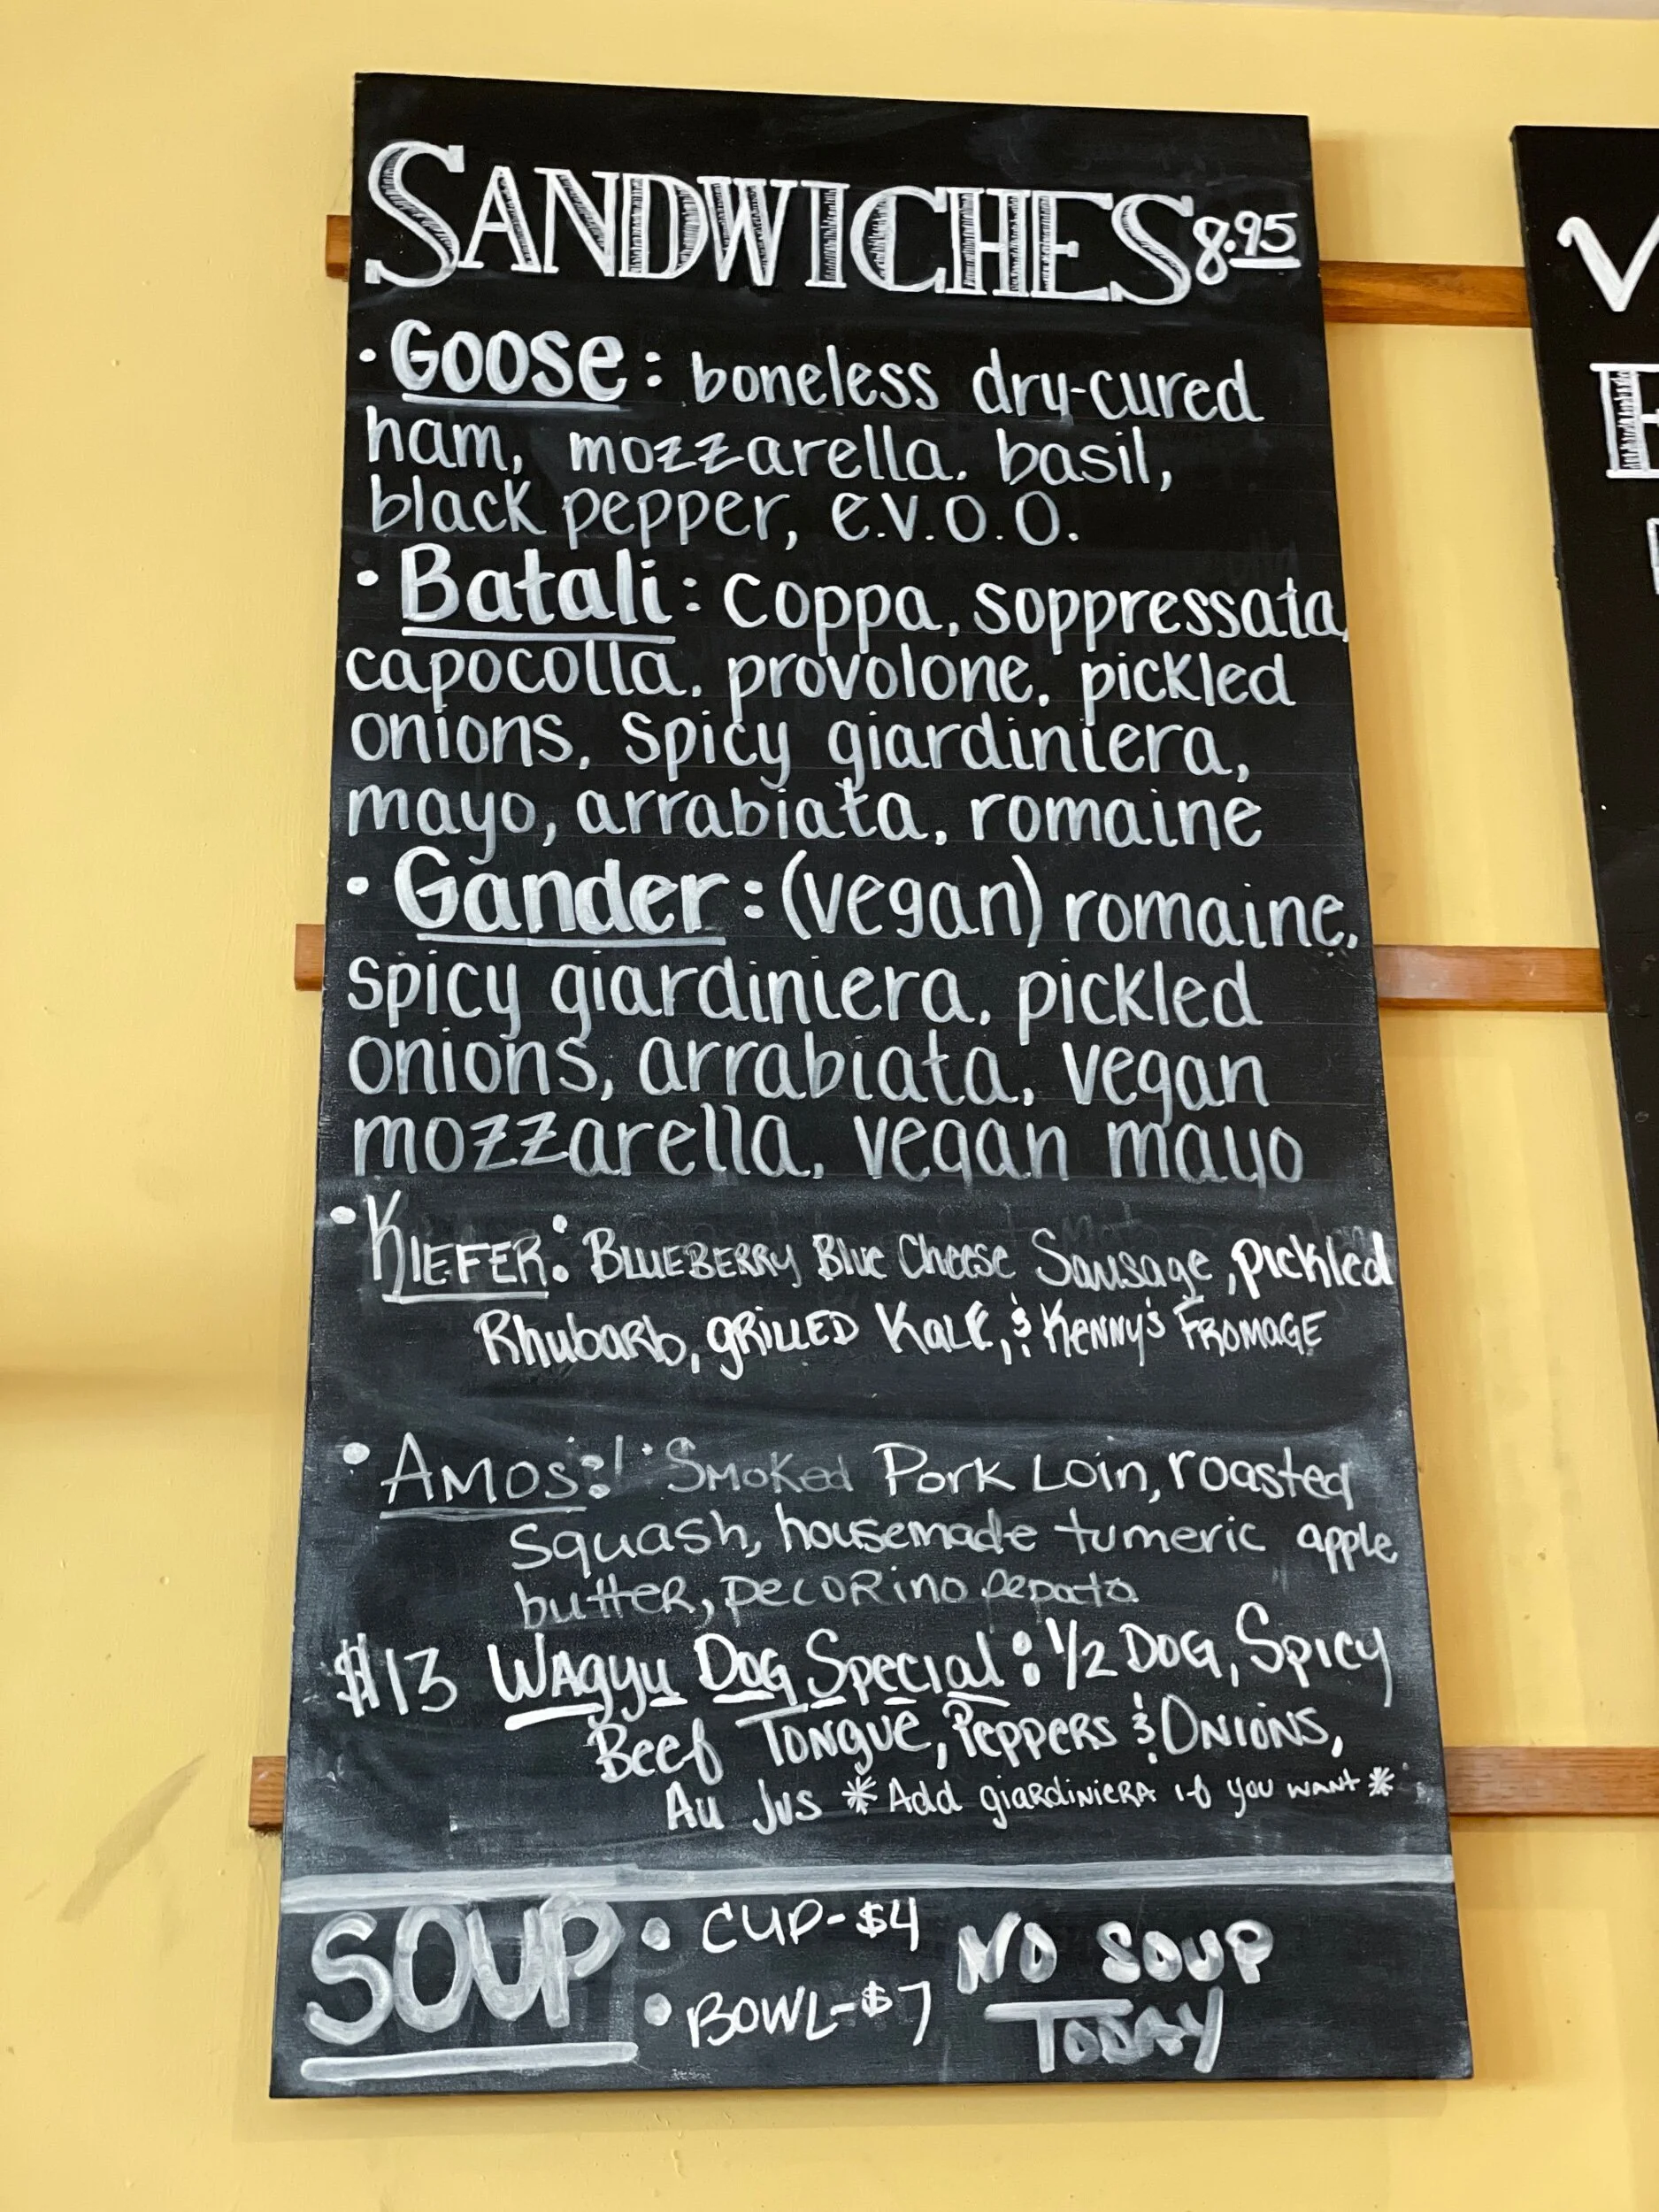 SANDWICHES 8.95
• Goose: boneless dry-cured
ham, mozzarella, basil,
black pepper, e.v.o.o.
• Batali: coppa, soppressata,
capocolla, provolone, pickled
onions, spicy giardiniera,
mayo, arrabiata, romaine
• Gander: (vegan) romaine,
spicy giardiniera, pickled
onions, arrabiata, vegan
mozzarella, vegan mayo
• KIEFER: BLUEBERRY Blue Cheese Sausage, pickled
Rhubarb, GRILLED KALE, & KENNY'S FROMAGE
• AMOS: Smoked Pork Loin, roasted
squash, housemade tumeric apple
butter, pecorino pepato
$13 Wagyu Dog Special: 1/2 DOG, Spicy
Beef Tongue, Peppers & Onions,
Au Jus *Add giardiniera if you want*
SOUP • CUP-$4 NO SOUP
• BOWL-$7 TODAY